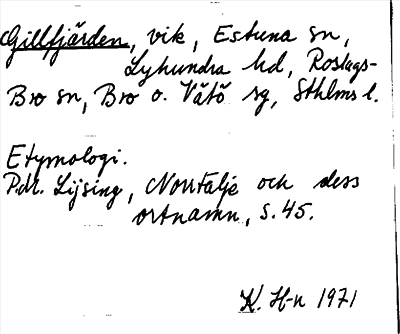 Gillfjärden, vik, Estuna sn,
Lyhundra hd, Roslags-
Bro sn, Bro o. Vätö sg, Sthlms l.
Etymologi.
Lijsing, Norrtälje och dess
ortnamn, s. 45.
K. H-n 1971